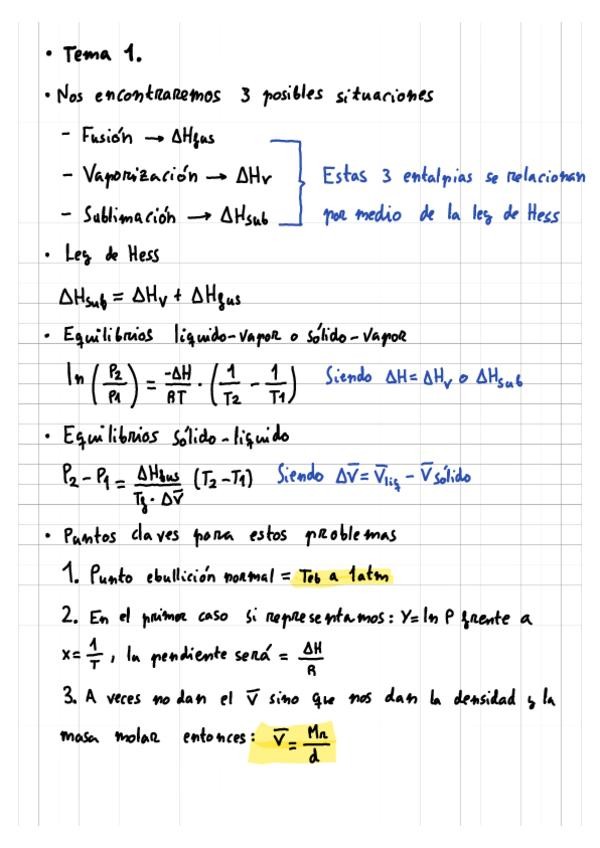 • Tema 1.
• Nos encontraremos 3 posibles situaciones
- Fusión → ΔHfus
- Vaporización → ΔHv
- Sublimación → ΔHsub
Estas 3 entalpias se relacionan
por medio de la ley de Hess
• Ley de Hess
ΔHsub = ΔHv + ΔHfus
• Equilibrios líquido-vapor o sólido-vapor
ln (P2/P1) = -ΔH/RT · (1/T2 - 1/T1) Siendo ΔH = ΔHv o ΔHsub
• Equilibrios sólido-líquido
P2 - P1 = ΔHfus/(Tf · ΔV̅) (T2 - T1) Siendo ΔV̅ = V̅liq - V̅sólido
• Puntos claves para estos problemas
1. Punto ebullición normal = Teb a 1atm
2. En el primer caso si representamos: Y = ln P frente a
x = 1/T, la pendiente será = ΔH/R
3. A veces no dan el V̅ sino que nos dan la densidad y la
masa molar entonces: V̅ = Mr/d